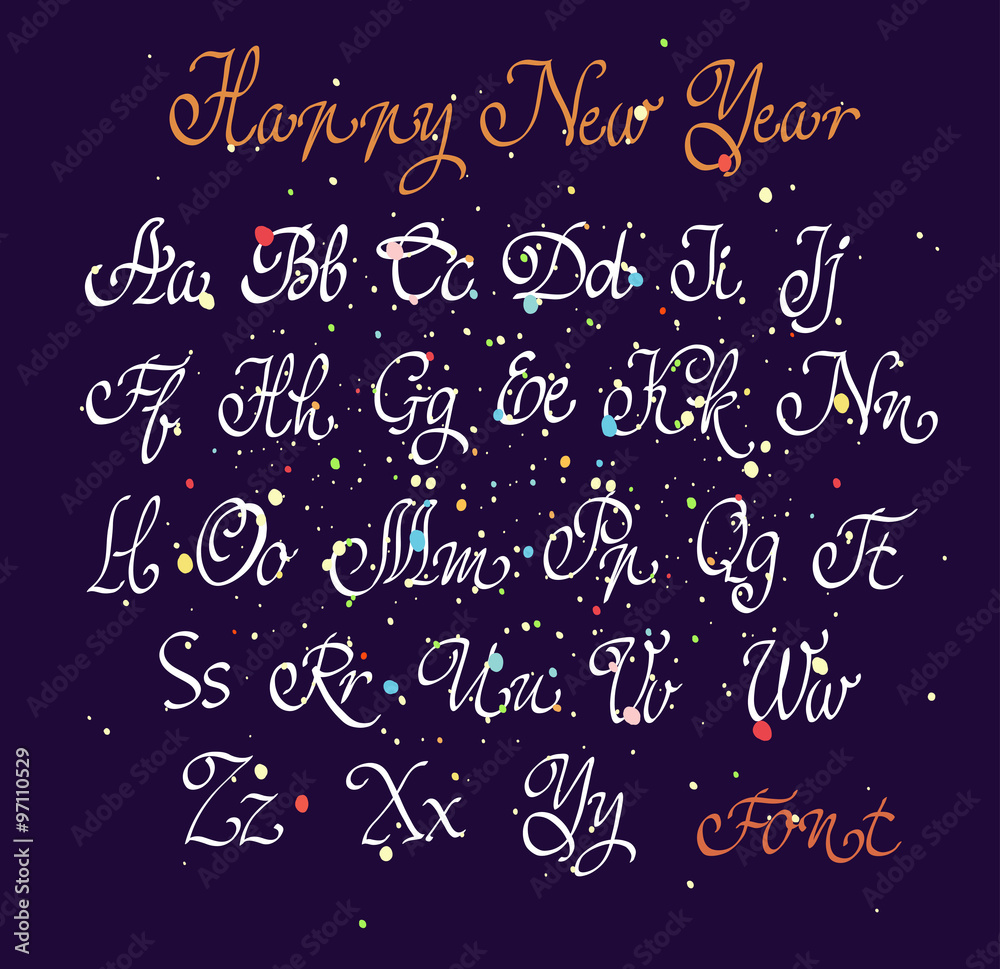 Happy New Year
Aa Bb Cc Dd Ii Jj
Ff Hh Gg Ee Kk Nn
Ll Oo Mm Pp Qq Tt
Ss Rr Uu Vv Ww
Zz Xx Yy Font
Adobe Stock | #97110529